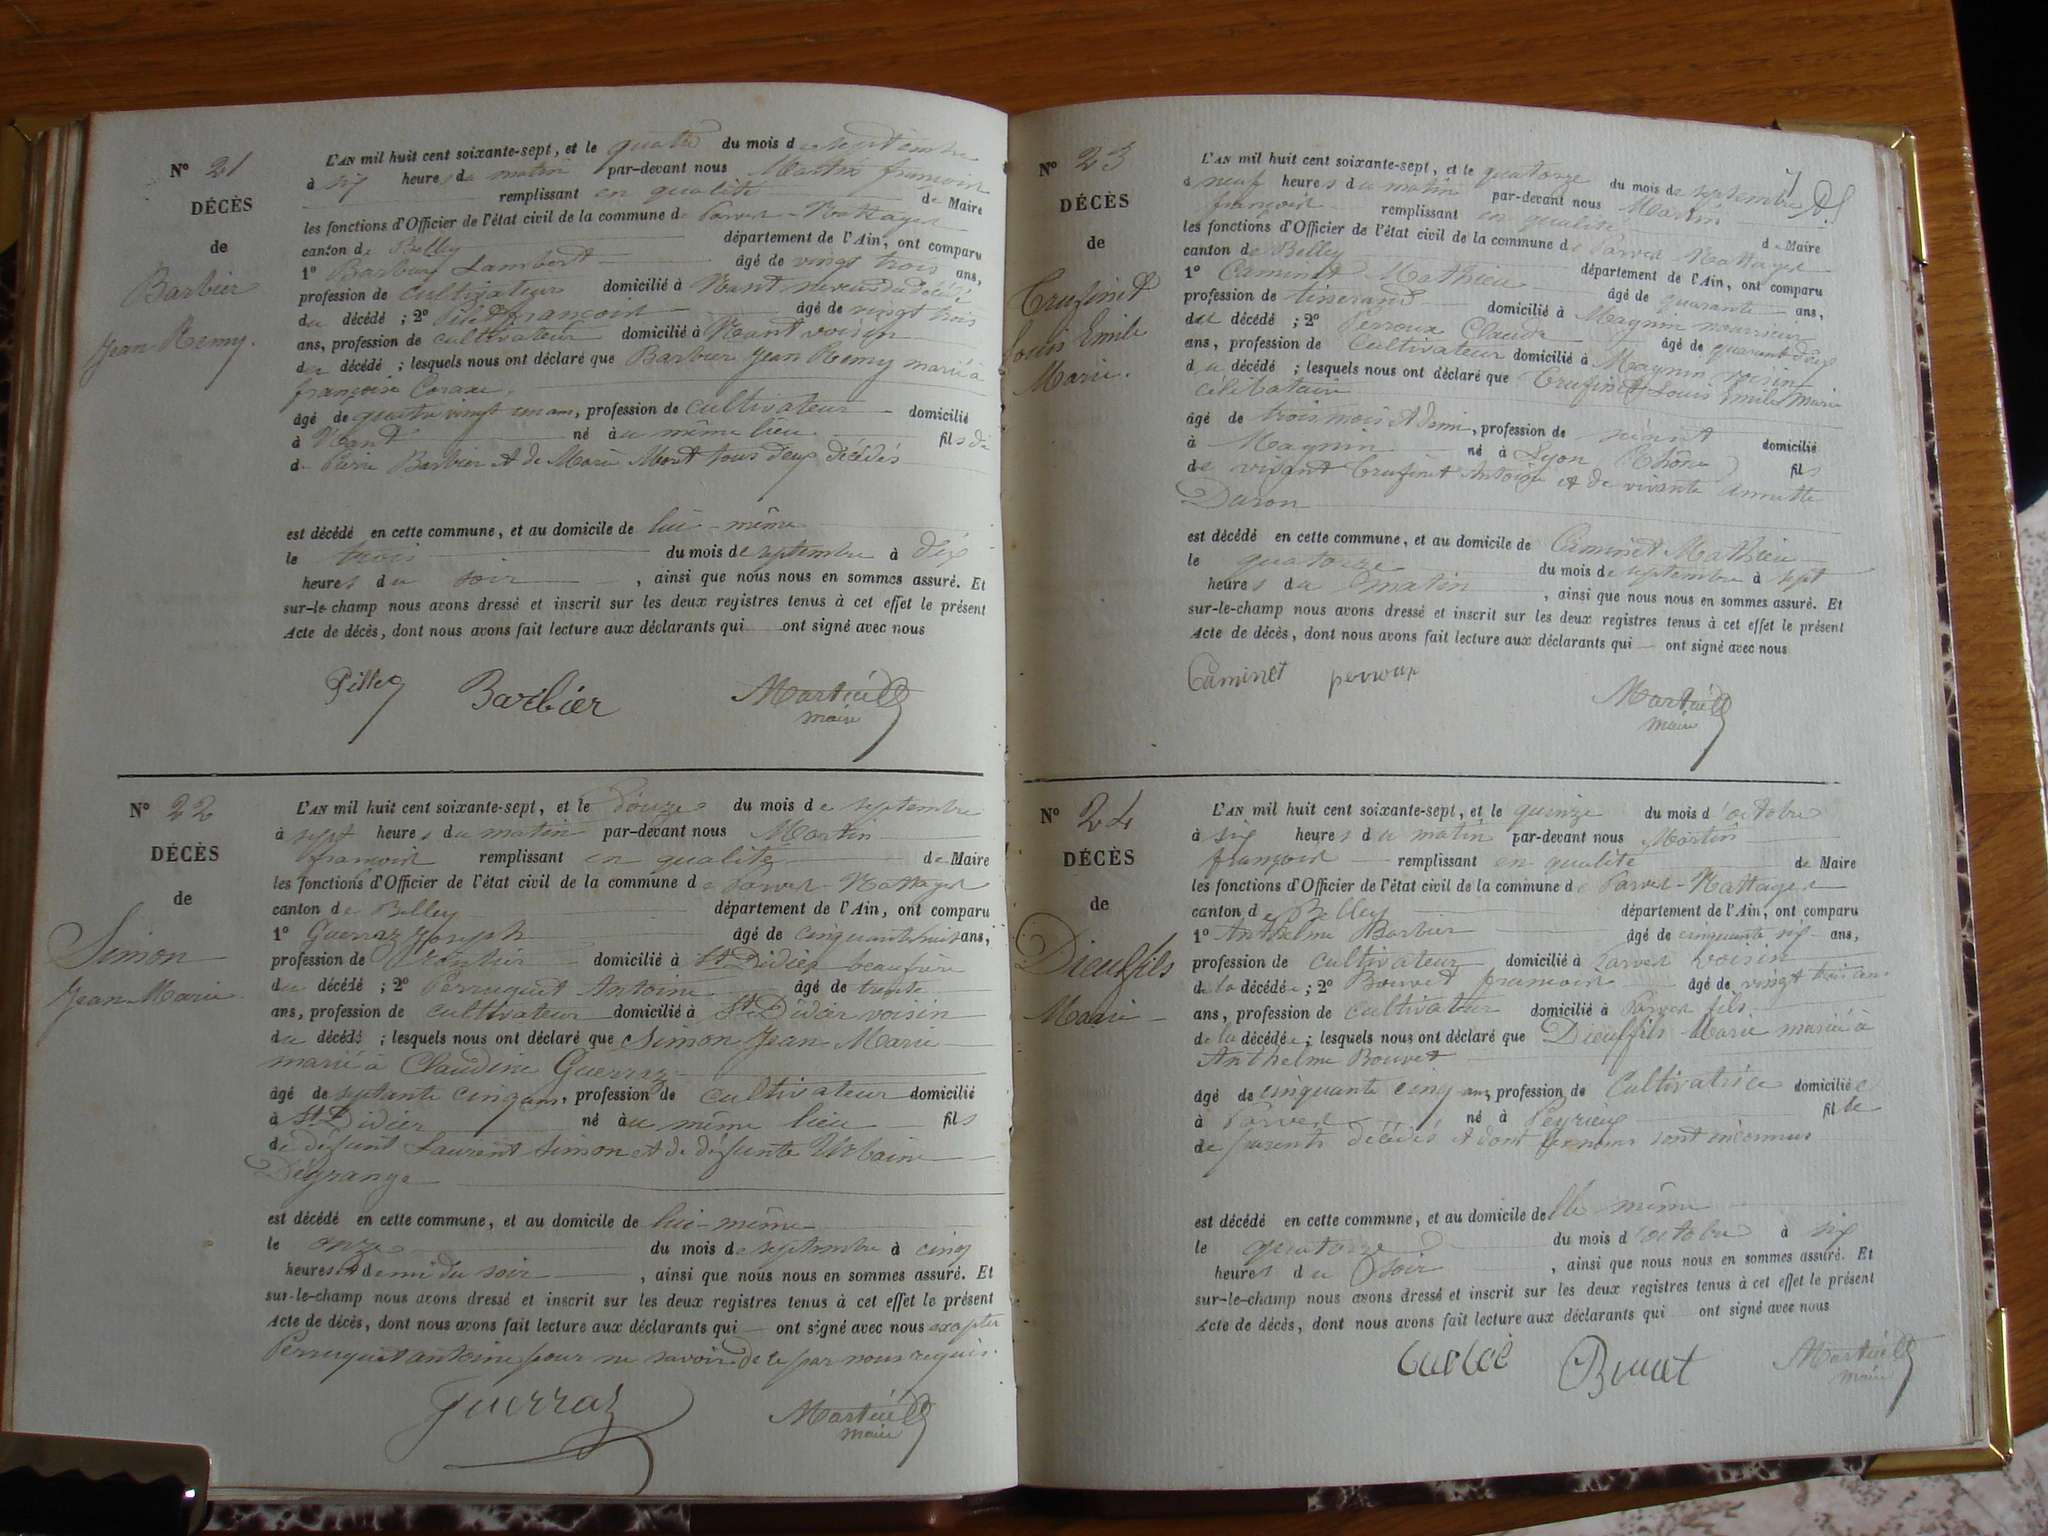 N° 21
DÉCÈS
de
Barbier
Jean Remy.
L'AN mil huit cent soixante-sept, et le quatre du mois de septembre
à six heures du matin par-devant nous Martin françois
remplissant en qualité de Maire
les fonctions d'Officier de l'état civil de la commune de Parves-Nattages
canton de Belley département de l'Ain, ont comparu
1° Barbier Lambert âgé de vingt trois ans,
profession de cultivateur domicilié à Nant neveu du décédé
du décédé ; 2° françois âgé de vingt trois
ans, profession de cultivateur domicilié à Nant voisin
du décédé ; lesquels nous ont déclaré que Barbier Jean Remy marié à
françoise
âgé de quatre vingt un ans, profession de cultivateur domicilié
à Nant né au même lieu fils de
de Pierre Barbier et de Marie Mont tous deux décédés
est décédé en cette commune, et au domicile de lui-même
le trois du mois de septembre à dix
heures du soir , ainsi que nous nous en sommes assuré. Et
sur-le-champ nous avons dressé et inscrit sur les deux registres tenus à cet effet le présent
Acte de décès, dont nous avons fait lecture aux déclarants qui ont signé avec nous
Barbier
maire
N° 22
DÉCÈS
de
Simon
Jean-Marie
L'AN mil huit cent soixante-sept, et le Douze du mois de septembre
à sept heures du matin par-devant nous Martin
françois remplissant en qualité de Maire
les fonctions d'Officier de l'état civil de la commune de Parves-Nattages
canton de Belley département de l'Ain, ont comparu
1° Guerraz Joseph âgé de cinquante huit ans,
profession de domicilié à St Didier beaufrère
du décédé ; 2° Perruquet Antoine âgé de trente
ans, profession de cultivateur domicilié à St Didier voisin
du décédé ; lesquels nous ont déclaré que Simon Jean-Marie
marié à Claudine Guerraz
âgé de septante cinq ans, profession de cultivateur domicilié
à St Didier né au même lieu fils
de défunt Laurent Simon et de défunte Urbaine
Dégrange
est décédé en cette commune, et au domicile de lui-même
le onze du mois de septembre à cinq
heures et demi du soir , ainsi que nous nous en sommes assuré. Et
sur-le-champ nous avons dressé et inscrit sur les deux registres tenus à cet effet le présent
Acte de décès, dont nous avons fait lecture aux déclarants qui ont signé avec nous excepter
Perruquet antoine pour ne savoir de ce par nous requis.
Guerraz
maire
N° 23
DÉCÈS
de
Crufinet
Louis Emile
Marie.
L'AN mil huit cent soixante-sept, et le quatorze du mois de septembre
à neuf heures du matin par-devant nous Martin
françois remplissant en qualité de Maire
les fonctions d'Officier de l'état civil de la commune de Parves Nattages
canton de Belley département de l'Ain, ont comparu
1° Caminet Mathieu âgé de quarante ans,
profession de tisserand domicilié à Magnin nourricier
du décédé ; 2° Perroux Claude âgé de quarante deux
ans, profession de Cultivateur domicilié à Magnin voisin
du décédé ; lesquels nous ont déclaré que Crufinet Louis Emile Marie
célibataire
âgé de trois mois et demi, profession de néant domicilié
à Magnin né à Lyon (Rhône) fils
de vivant Crufinet Antoine et de vivante Annette
Duron
est décédé en cette commune, et au domicile de Caminet Mathieu
le quatorze du mois de septembre à sept
heures du matin , ainsi que nous nous en sommes assuré. Et
sur-le-champ nous avons dressé et inscrit sur les deux registres tenus à cet effet le présent
Acte de décès, dont nous avons fait lecture aux déclarants qui ont signé avec nous
Caminet perroux
maire
N° 24
DÉCÈS
de
Dieulfils
Marie
L'AN mil huit cent soixante-sept, et le quinze du mois d'octobre
à six heures du matin par-devant nous Martin
françois remplissant en qualité de Maire
les fonctions d'Officier de l'état civil de la commune de Parves-Nattages
canton de Belley département de l'Ain, ont comparu
1° Anthelme Barbier âgé de cinquante six ans,
profession de cultivateur domicilié à Parves voisin
de la décédée ; 2° Bouvet françois âgé de vingt trois ans
ans, profession de cultivateur domicilié à Parves fils
de la décédée ; lesquels nous ont déclaré que Dieulfils Marie mariée à
Anthelme Bouvet
âgé de cinquante cinq ans, profession de Cultivatrice domiciliée
à Parves né à Peyrieu fille
de parents décédés et dont les noms sont inconnus
est décédé en cette commune, et au domicile de elle même
le quatorze du mois d'octobre à six
heures du soir , ainsi que nous nous en sommes assuré. Et
sur-le-champ nous avons dressé et inscrit sur les deux registres tenus à cet effet le présent
Acte de décès, dont nous avons fait lecture aux déclarants qui ont signé avec nous
maire